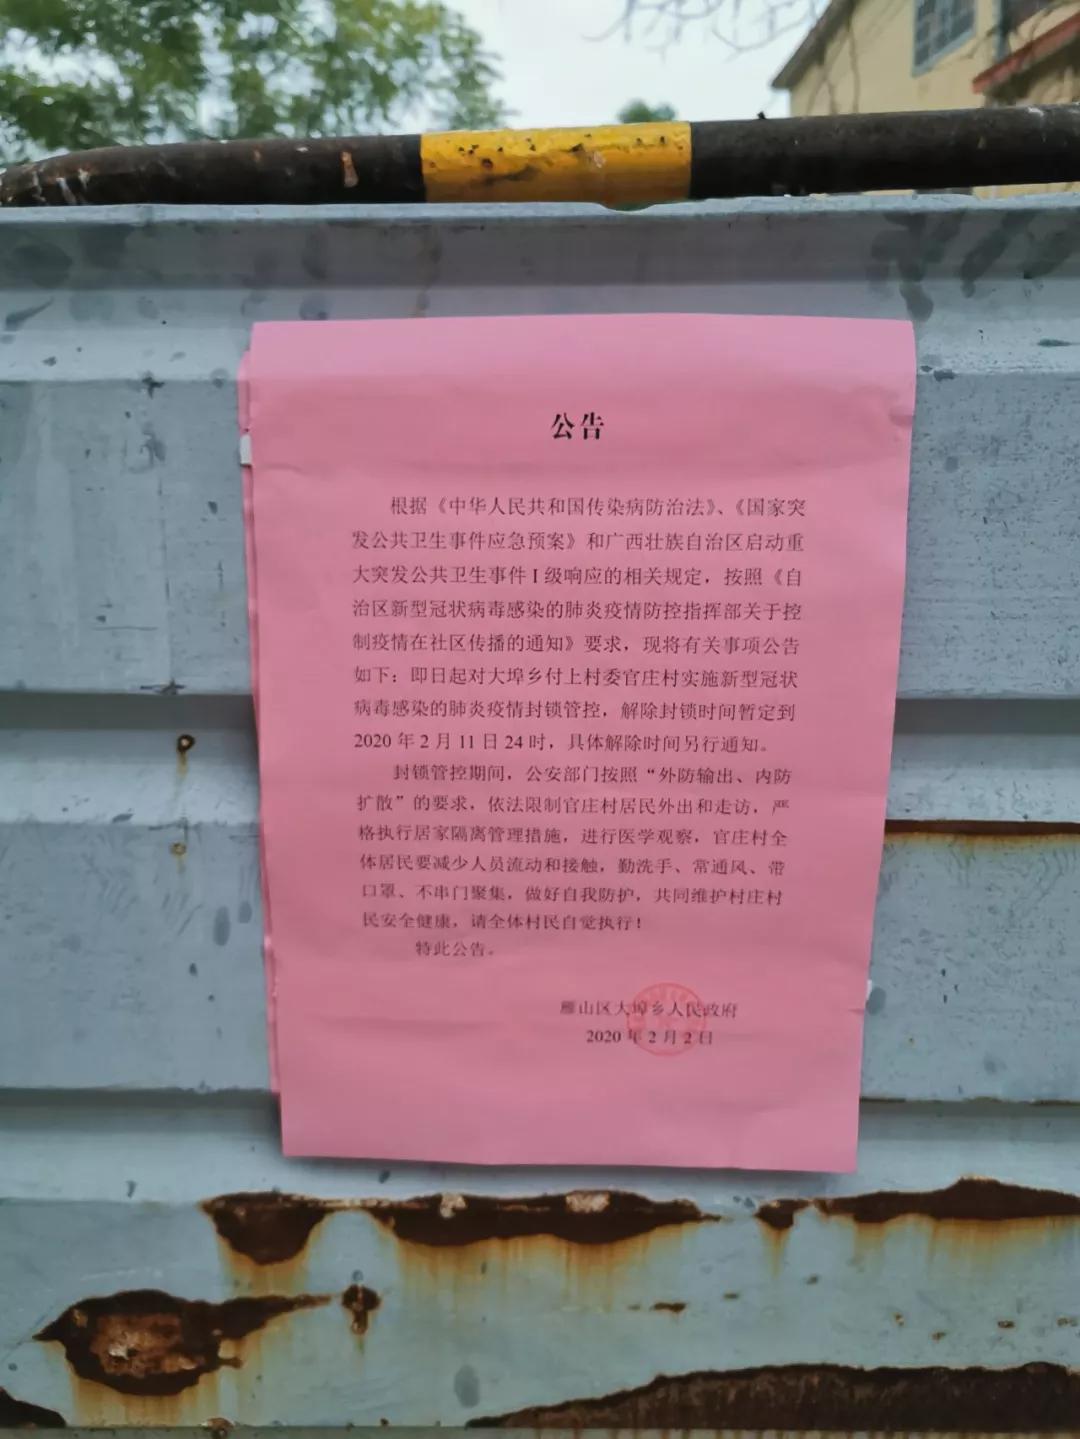 公告
根据《中华人民共和国传染病防治法》、《国家突
发公共卫生事件应急预案》和广西壮族自治区启动重
大突发公共卫生事件I级响应的相关规定，按照《自
治区新型冠状病毒感染的肺炎疫情防控指挥部关于控
制疫情在社区传播的通知》要求，现将有关事项公告
如下：即日起对大埠乡付上村委官庄村实施新型冠状
病毒感染的肺炎疫情封锁管控，解除封锁时间暂定到
2020年2月11日24时，具体解除时间另行通知。
封锁管控期间，公安部门按照“外防输出、内防
扩散”的要求，依法限制官庄村居民外出和走访，严
格执行居家隔离管理措施，进行医学观察，官庄村全
体居民要减少人员流动和接触，勤洗手、常通风、带
口罩、不串门聚集，做好自我防护，共同维护村庄村
民安全健康，请全体村民自觉执行！
特此公告。
雁山区大埠乡人民政府
2020年2月2日